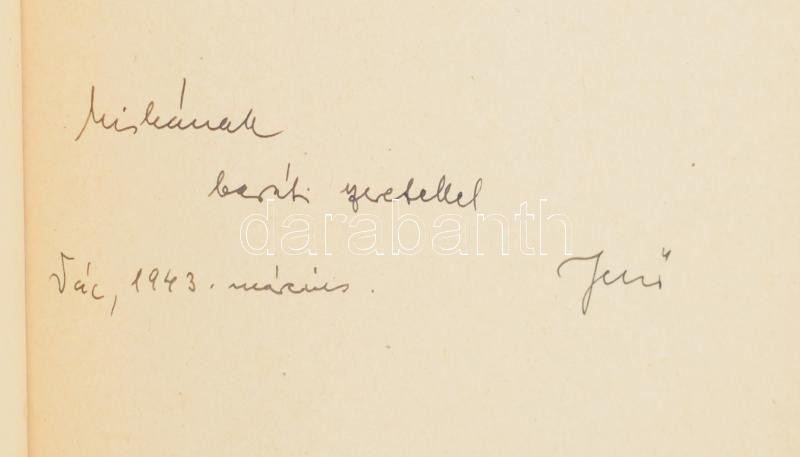 Miskának
baráti szeretettel
darabanth
Vác, 1943. március.
Jenő